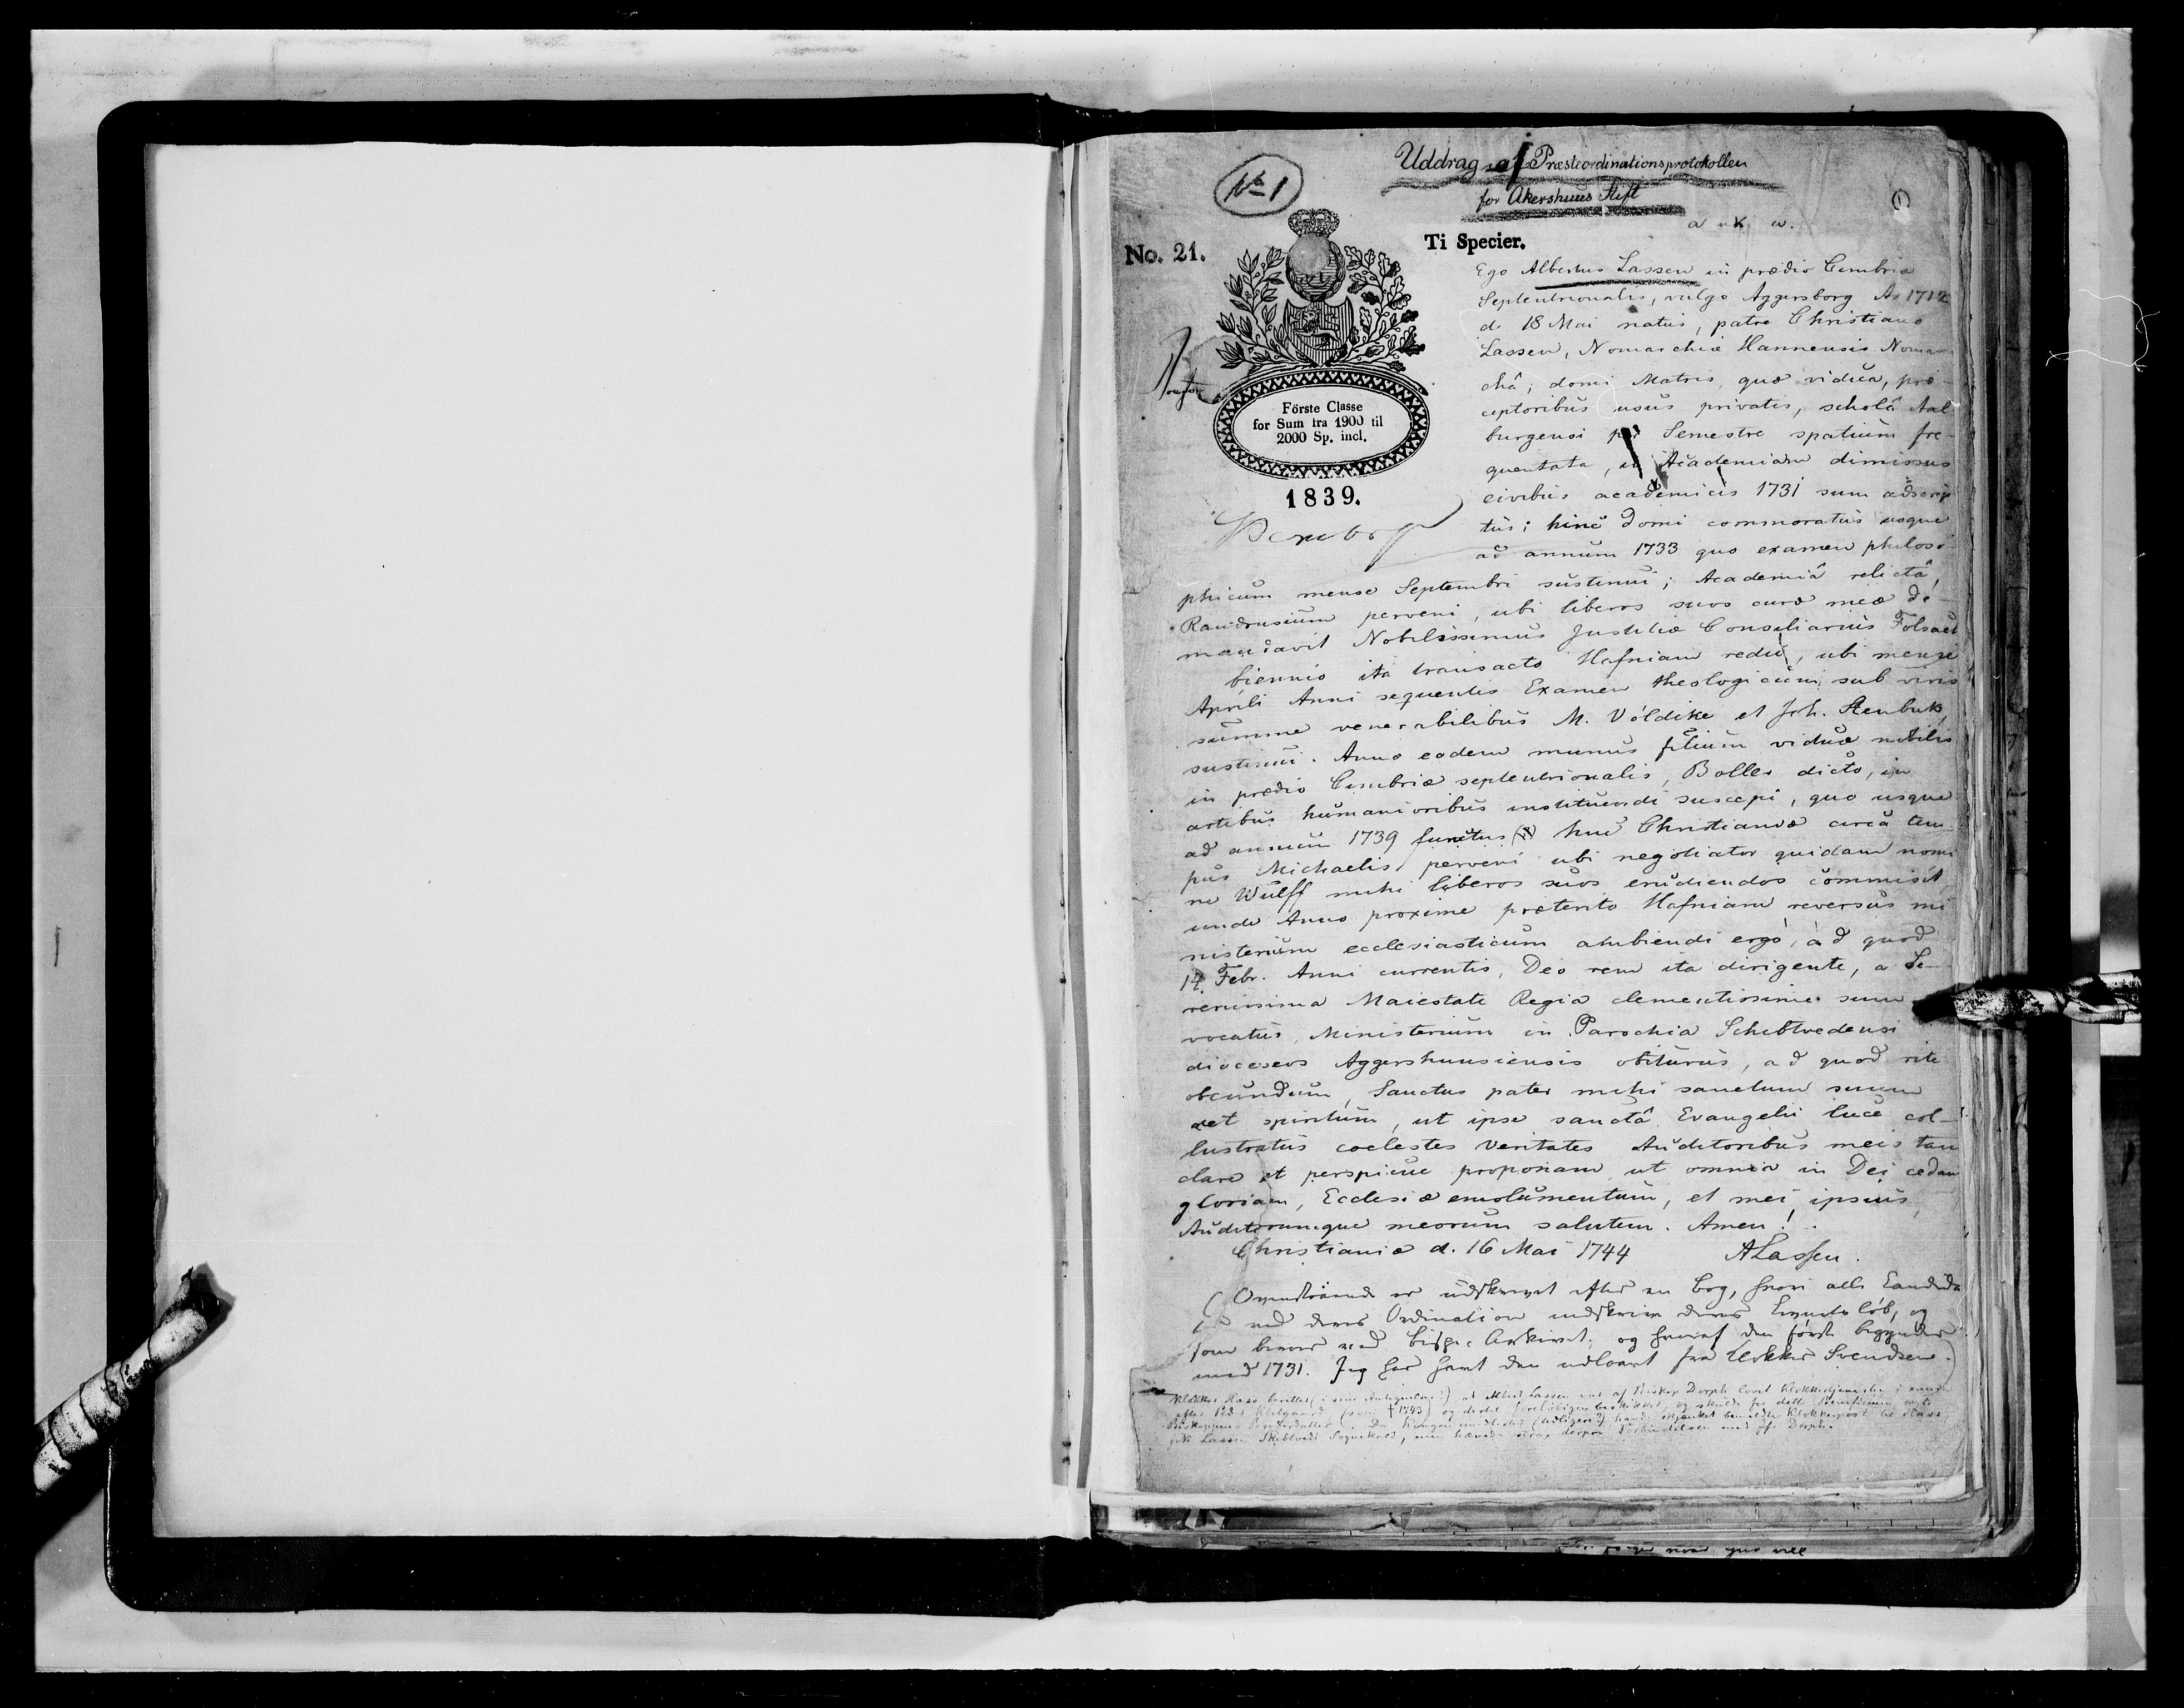 Uddrag af Præsteordinationsprotokollen
for Akershuus Stift
No 1
No. 21.
Ti Specier.
Förste Classe
for Sum fra 1900 til
2000 Sp. incl.
1839.
Ego Albertus Lassen in prædio Cimbriæ
Septentrionalis, vulgo Aggersborg Ao 1712
d. 18 Mai natus, patre Christiano
Lassen, Nomarchiæ Hannensis Nomar
châ; domi Matris, quæ vidua, præ-
ceptoribus usus privatis, scholâ Aal
burgensi per Semestre spatium fre-
quentata, in Academiam dimissus
civibus academicis 1731 sum adscrip
tus; hinc domi commoratus usque
ad annum 1733 quo examen philoso
phicum mense Septembri sustinui; Academiâ relictâ,
Randrusium perveni, ubi liberos suos curæ meæ de-
mandavit Nobilissimus Justitiæ Consiliarius Folsach
biennio ita transacto Hafniam redii, ubi mense
Aprili Anni sequentis Examen theologicum sub viris
summe venerabilibus M. Völdike et Joh. Stenbuk,
sustinui. Anno eodem munus filium viduæ nobilis
in prædio Cimbriæ septentrionalis, Boller dicto, in
artibus humanioribus instituendi suscepi, quo usque
ad annum 1739 functus huc Christianiæ circa tem
pus Michaelis perveni ubi negotiator quidam nomi
ne Wulff mihi liberos suos erudiendos commisit,
unde Anno proxime præterito Hafniam reversus mi
nisterium ecclesiasticum ambiendi ergo, ad quod
14 Febr. Anni currentis, Deo rem ita dirigente, a Se-
renissima Maiestate Regia clementissime sum
vocatus, Ministerium in Parochia Schibtvedensi
dioceseos Aggershuusiensis obiturus, ad quod rite
obeundum, Sanctus pater mihi sanctum suum
det spiritum, ut ipse sanctâ Evangelii luce col-
lustratus coelestes veritates Auditoribus meis tam
clare et perspicue proponam ut omnia in Dei cedan
gloriam, Ecclesiæ emolumentum, et mei ipsius,
Auditorumque meorum salutem. Amen!
Christianiæ d. 16 Mai 1744 ALassen.
(Ovenstaaende er udskrevet efter en Bog, hvori alle Candida
ved deres Ordination indskrive deres Levnets løb, og
som beroer ved Bispe Arkivet; og hvoraf den første begynder
med 1731. Jeg har havt den udlaant fra Klokker Svendsen.)
Klokker Rass beretter at Albert Lassen var af Biskop Dorph lovet Klokkertjenesten
efter Peder † 1743) og dertil
Biskoppens Broderdatter. Da Kongen imidlertid havde skjænket bemeldte Klokkerpost til Rass,
fik Lassen Skibtvedt Sognekald, men hævede Forbindelsen med Jfr. Dorph.